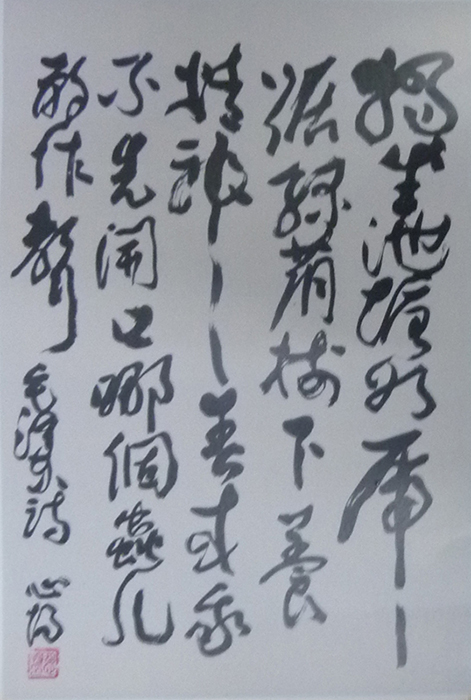 獨坐池塘如虎
踞綠蔭樹下養
精神春來我
不先開口哪個蟲儿
敢作聲 毛澤東詩 心